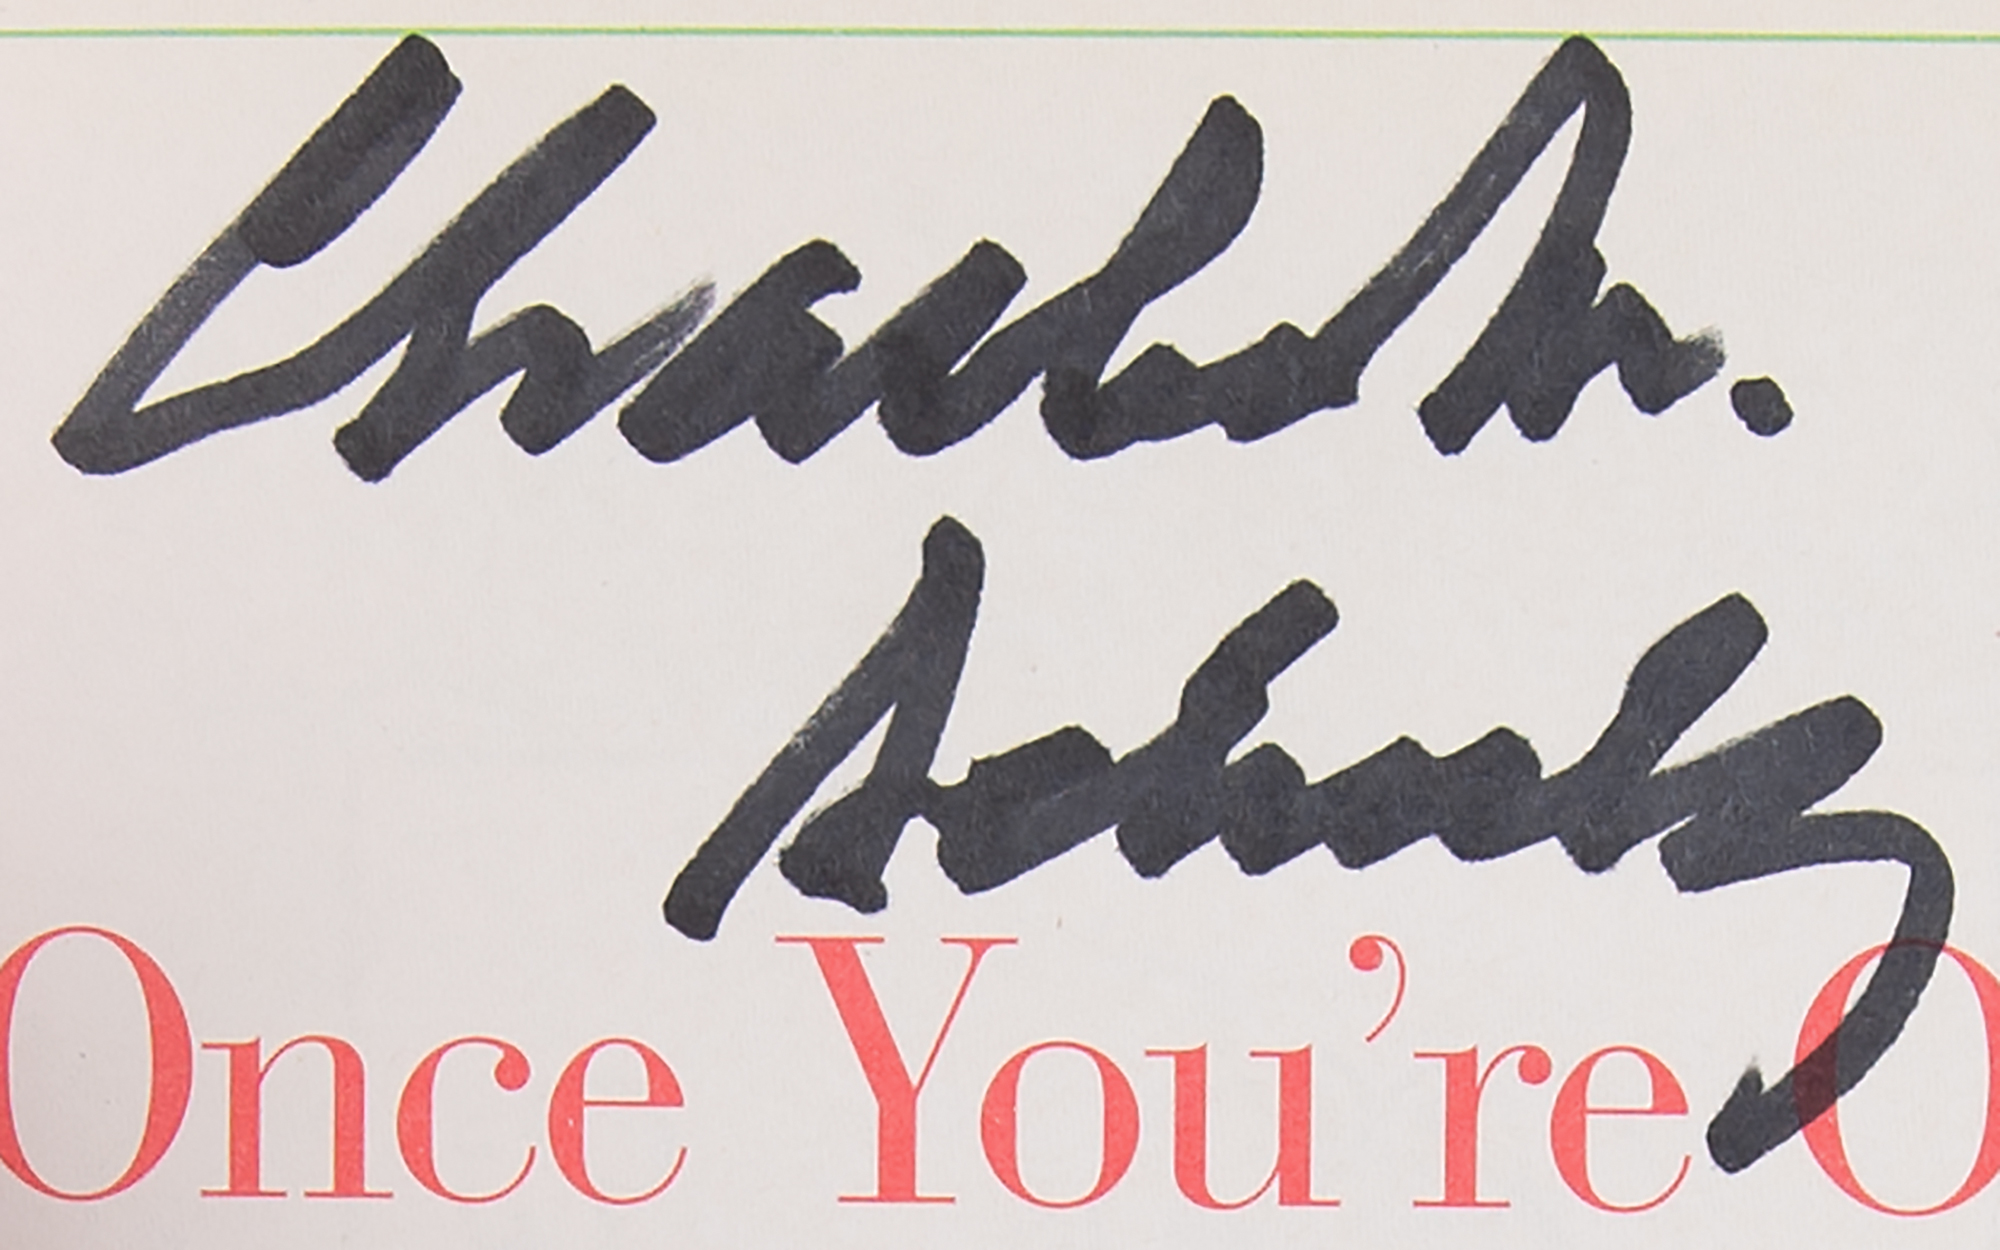 Charles M.
Schulz
Once You're O